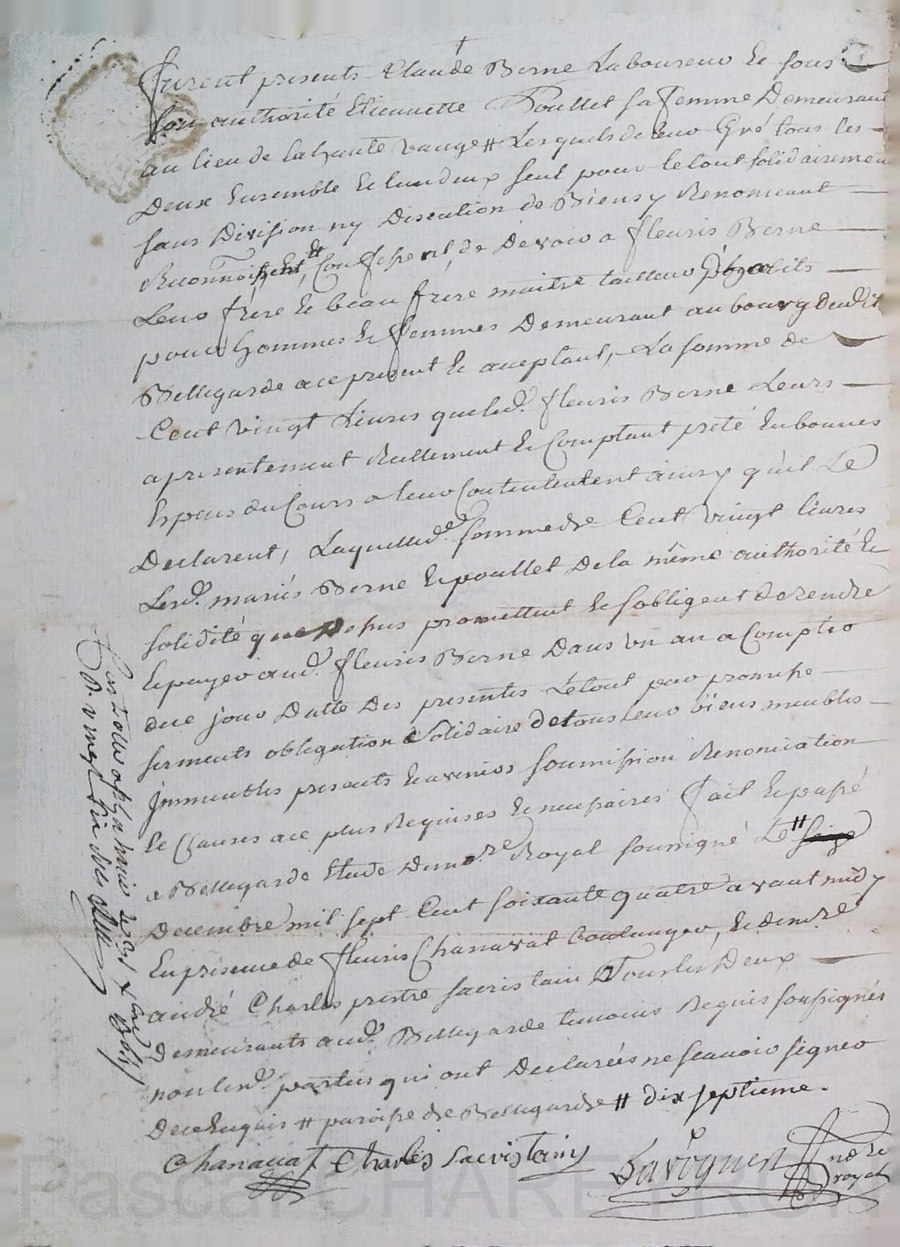 furent presents Claude Berne Laboureur et sous
son authorité Etiennette Poullet sa femme Demeurant
au lieu de la haute vauge # Lesquels de leur Gré tous les
Deux Ensemble et lun deux seul pour le tout solidairement
sans Division ny Discution de Biens y Renonceant
Reconnoissent et Confessent de Devoir a fleuris Berne
Leur frère et beau frère maitre tailleur D'habits
pour hommes et femmes Demeurant au bourg dudit
Bellegarde a ce present et aceptant, La somme de
Cent vingt Livres que led. fleuris Berne Leurs
a presentement Reellement et Comptant preté En bonnes
Especes du Cours a leur Contentement ainsy qu'il Le
Declarent, Laquelle d.e somme de Cent vingt livres
Lesd. mariés Berne et poullet De la même authorité et
solidité que Dessus promettent et sobligent de rendre
et payer aud. fleuris Berne Dans un an a Compter
du jour Datte Des presentes Le tout par promesse
serments obligation solidaire de tous leur biens meubles
immeubles presents et avenirs soumission Renonciation
et Clauses a ce plus Requises et necessaires fait et passé
a Bellegarde Etude Du no.re Royal soussigné Le #
Decembre mil sept Cent soixante quatre avant midy
En presence de fleuris Chanavat boulanger, et de m.re
andré Charles prêtre sacristain Tous les Deux
demeurants aud. Bellegarde temoins Requis soussignés
non lesd. parties qui ont Declarées ne scavoir signer
De ce Enquis # paroisse de Bellegarde # dix septieme.
Chanavat Charles sacristain
no.re royal